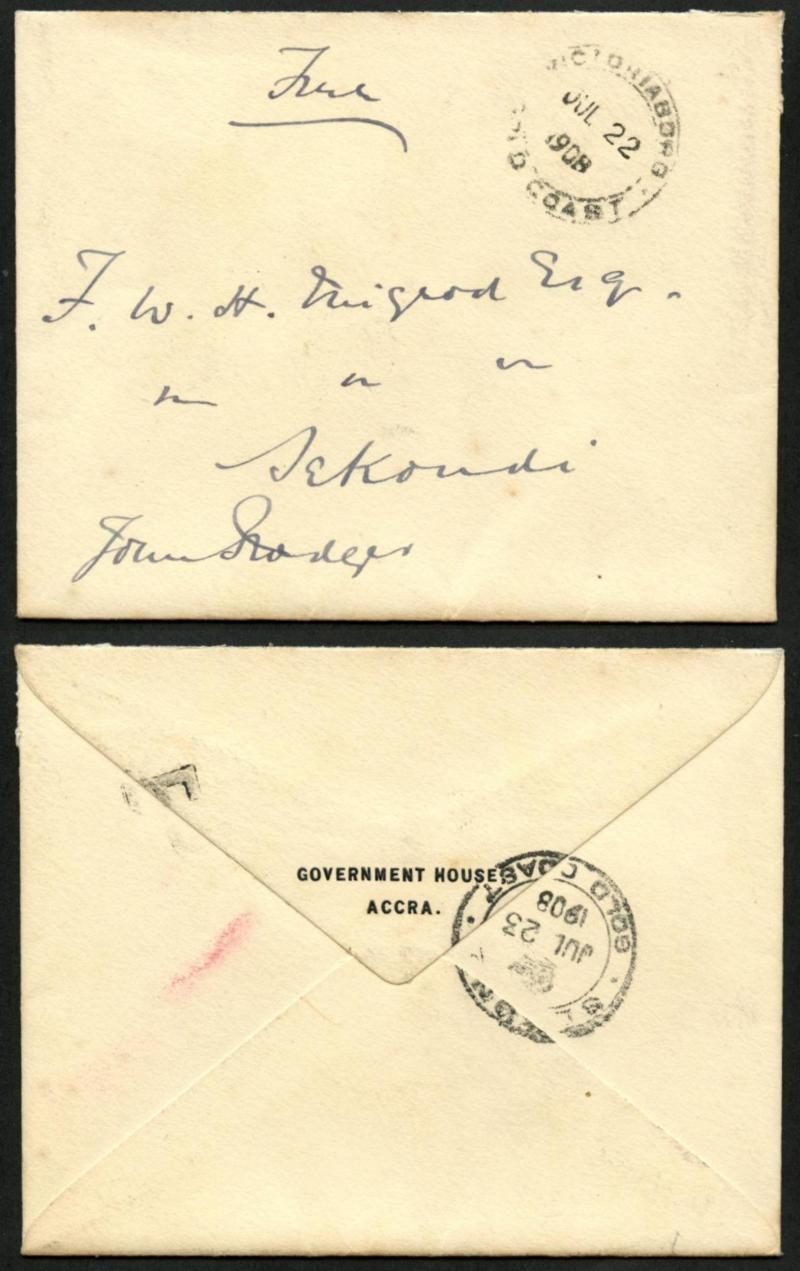 Free
VICTORIABORG
JUL 22
1908
GOLD COAST
F. W. H. Migeod Esq.
Sekondi
John P Rodger
GOVERNMENT HOUSE,
ACCRA.
GOLD COAST
JUL 23
1908